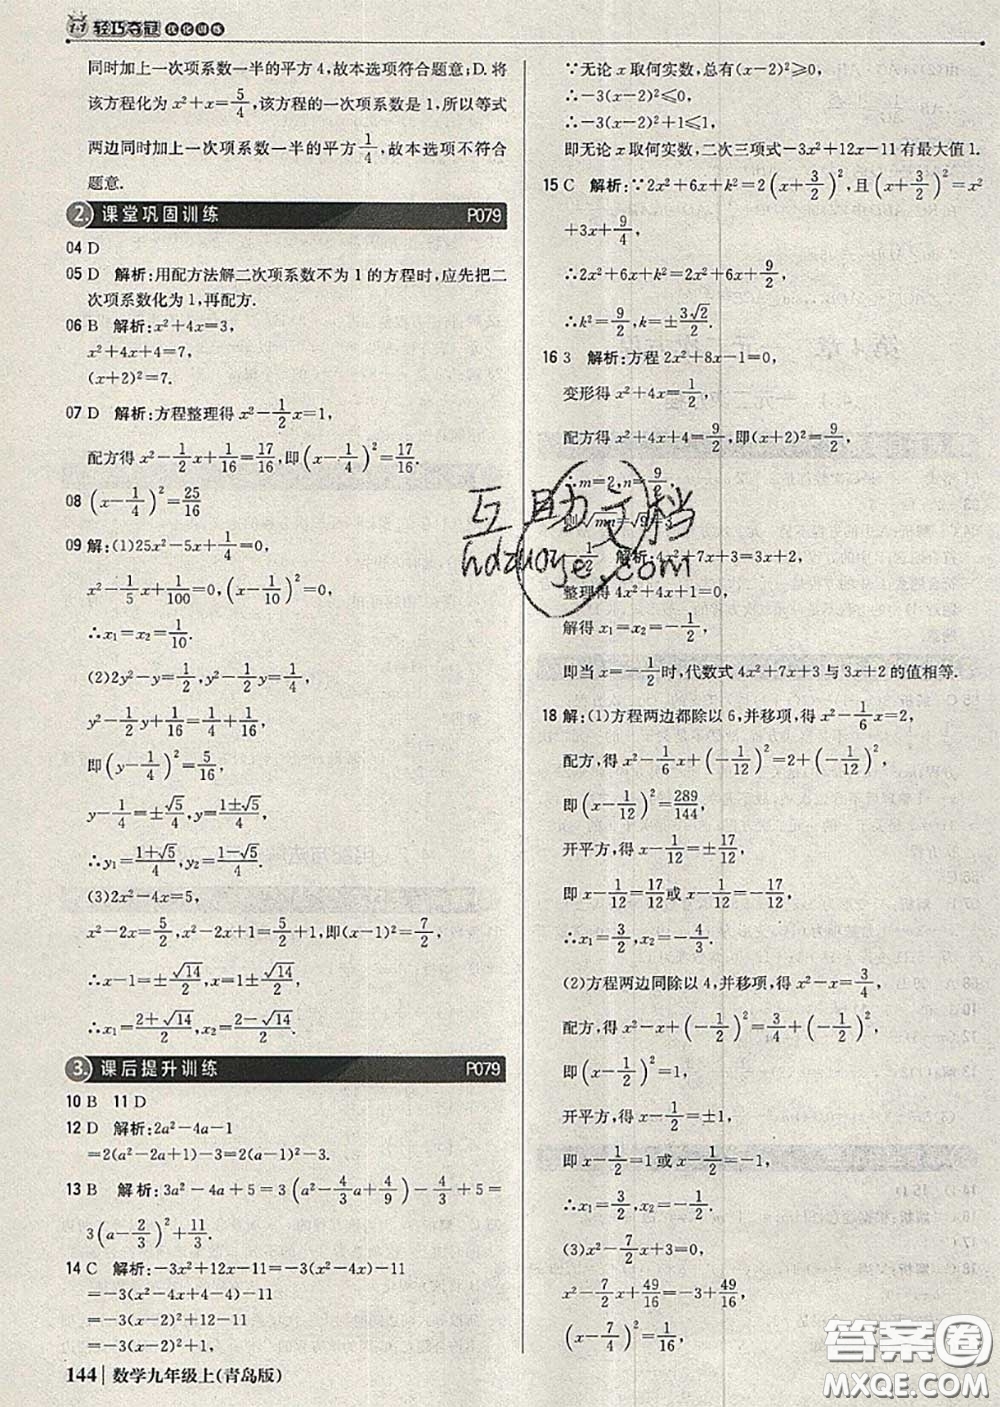 1+1 轻巧夺冠 优化训练
同时加上一次项系数一半的平方4,故本选项符合题意;D.将
该方程化为x²+x=5/4,该方程的一次项系数是1,所以等式
两边同时加上一次项系数一半的平方1/4,故本选项不符合
题意.
2. 课堂巩固训练 P079
04 D
05 D 解析:用配方法解二次项系数不为1的方程时,应先把二
次项系数化为1,再配方.
06 B 解析:x²+4x=3,
x²+4x+4=7,
(x+2)²=7.
07 D 解析:方程整理得x²-1/2x=1,
配方得x²-1/2x+1/16=17/16,即(x-1/4)²=17/16.
08 (x-1/4)²=25/16
09 解:(1)25x²-5x+1/4=0,
x²-1/5x+1/100=0,(x-1/10)²=0,
∴x₁=x₂=1/10.
(2)2y²-y=1/2,y²-1/2y=1/4,
y²-1/2y+1/16=1/4+1/16,
即(y-1/4)²=5/16,
y-1/4=±√5/4,y=(1±√5)/4,
∴y₁=(1+√5)/4,y₂=(1-√5)/4.
(3)2x²-4x=5,
x²-2x=5/2,x²-2x+1=5/2+1,即(x-1)²=7/2,
∴x-1=±√14/2,
∴x₁=(2+√14)/2,x₂=(2-√14)/2.
3. 课后提升训练 P079
10 B 11 D
12 D 解析:2a²-4a-1
=2(a²-2a+1)-3=2(a-1)²-3.
13 B 解析:3a²-4a+5=3(a²-4/3a+4/9)-4/3+5=
3(a-2/3)²+11/3.
14 C 解析:-3x²+12x-11=-3(x²-4x)-11
=-3(x-2)²+12-11
=-3(x-2)²+1.
144 数学九年级上(青岛版)
∵无论x取何实数,总有(x-2)²≥0,
∴-3(x-2)²≤0,
∴-3(x-2)²+1≤1,
即无论x取何实数,二次三项式-3x²+12x-11有最大值1.
15 C 解析:∵2x²+6x+k²=2(x+3/2)²,且(x+3/2)²=x²
+3x+9/4,
∴2x²+6x+k²=2x²+6x+9/2,
∴k²=9/2,k=±3√2/2.
16 3 解析:方程2x²+8x-1=0,
变形得x²+4x=1/2,
配方得x²+4x+4=9/2,即(x+2)²=9/2,
∴m=2,n=9/2,
则√mn=√9=3.
-1/2 解析:4x²+7x+3=3x+2,
整理得4x²+4x+1=0,
解得x₁=x₂=-1/2,
即当x=-1/2时,代数式4x²+7x+3与3x+2的值相等.
18 解:(1)方程两边都除以6,并移项,得x²-1/6x=2,
配方,得x²-1/6x+(-1/12)²=2+(-1/12)²,
即(x-1/12)²=289/144,
开平方,得x-1/12=±17/12,
即x-1/12=17/12或x-1/12=-17/12,
∴x₁=3/2,x₂=-4/3.
(2)方程两边同除以4,并移项,得x²-x=3/4,
配方,得x²-x+(-1/2)²=3/4+(-1/2)²,
即(x-1/2)²=1,
开平方,得x-1/2=±1,
即x-1/2=1或x-1/2=-1,
∴x₁=3/2,x₂=-1/2.
(3)x²-7/2x+3=0,
x²-7/2x+49/16=-3+49/16,
(x-7/4)²=1/16,
互助文档
hdzuoye.com
答案圈
MXQE.COM